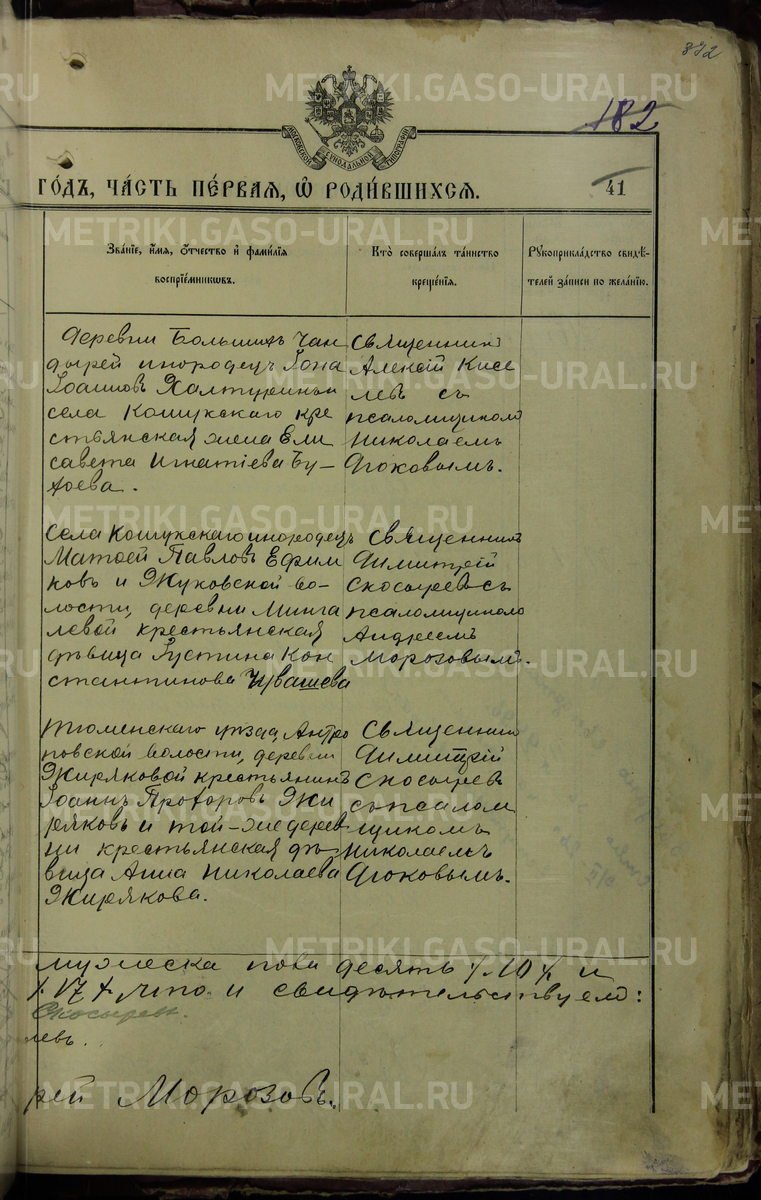 872
182
МОСКОВСКОЙ СѴНОДАЛЬНОЙ ТИПОГРАФІИ
ГОДЪ, ЧАСТЬ ПЕРВАЯ, Ѡ РОДИВШИХСЯ.
41
Званіе, имя, отчество и фамилія
воспріемниковъ.
Кто совершалъ таинство
крещенія.
Рукоприкладство свидѣ-
телей записи по желанію.
деревни Большихъ Чан
дырей инородецъ Іона
Іоанновъ Халтуринъ и
села Кошукскаго кре
стьянская жена Ели
савета Игнатіева Бу-
това.
Священникъ
Алексій Кисе
левъ съ
псаломщикомъ
Николаемъ
Дюковымъ.
Села Кошукскаго инородецъ
Матѳей Павловъ Ефим
ковъ и Жуковской во-
лости, деревни Минга
левой крестьянская
дѣвица Густина Кон
стантинова Чувашева
Священникъ
Димитрій
Скосыревъ съ
псаломщикомъ
Андреемъ
Морозовымъ.
Тюменскаго уѣзда, Антро
повской волости, деревни
Жиряковой крестьянинъ
Іоаннъ Прохоровъ Жи
ряковъ и той-же дерев
ни крестьянская дѣ
вица Анна Николаева
Жирякова.
Священникъ
Димитрій
Скосыревъ
съ псалом
щикомъ
Николаемъ
Дюковымъ.
мужеска пола десять /10/ и
/17/, что и свидѣтельствуемъ:
Скосырев
левъ.
рей Морозовъ.
METRIKI.GASO-URAL.RU